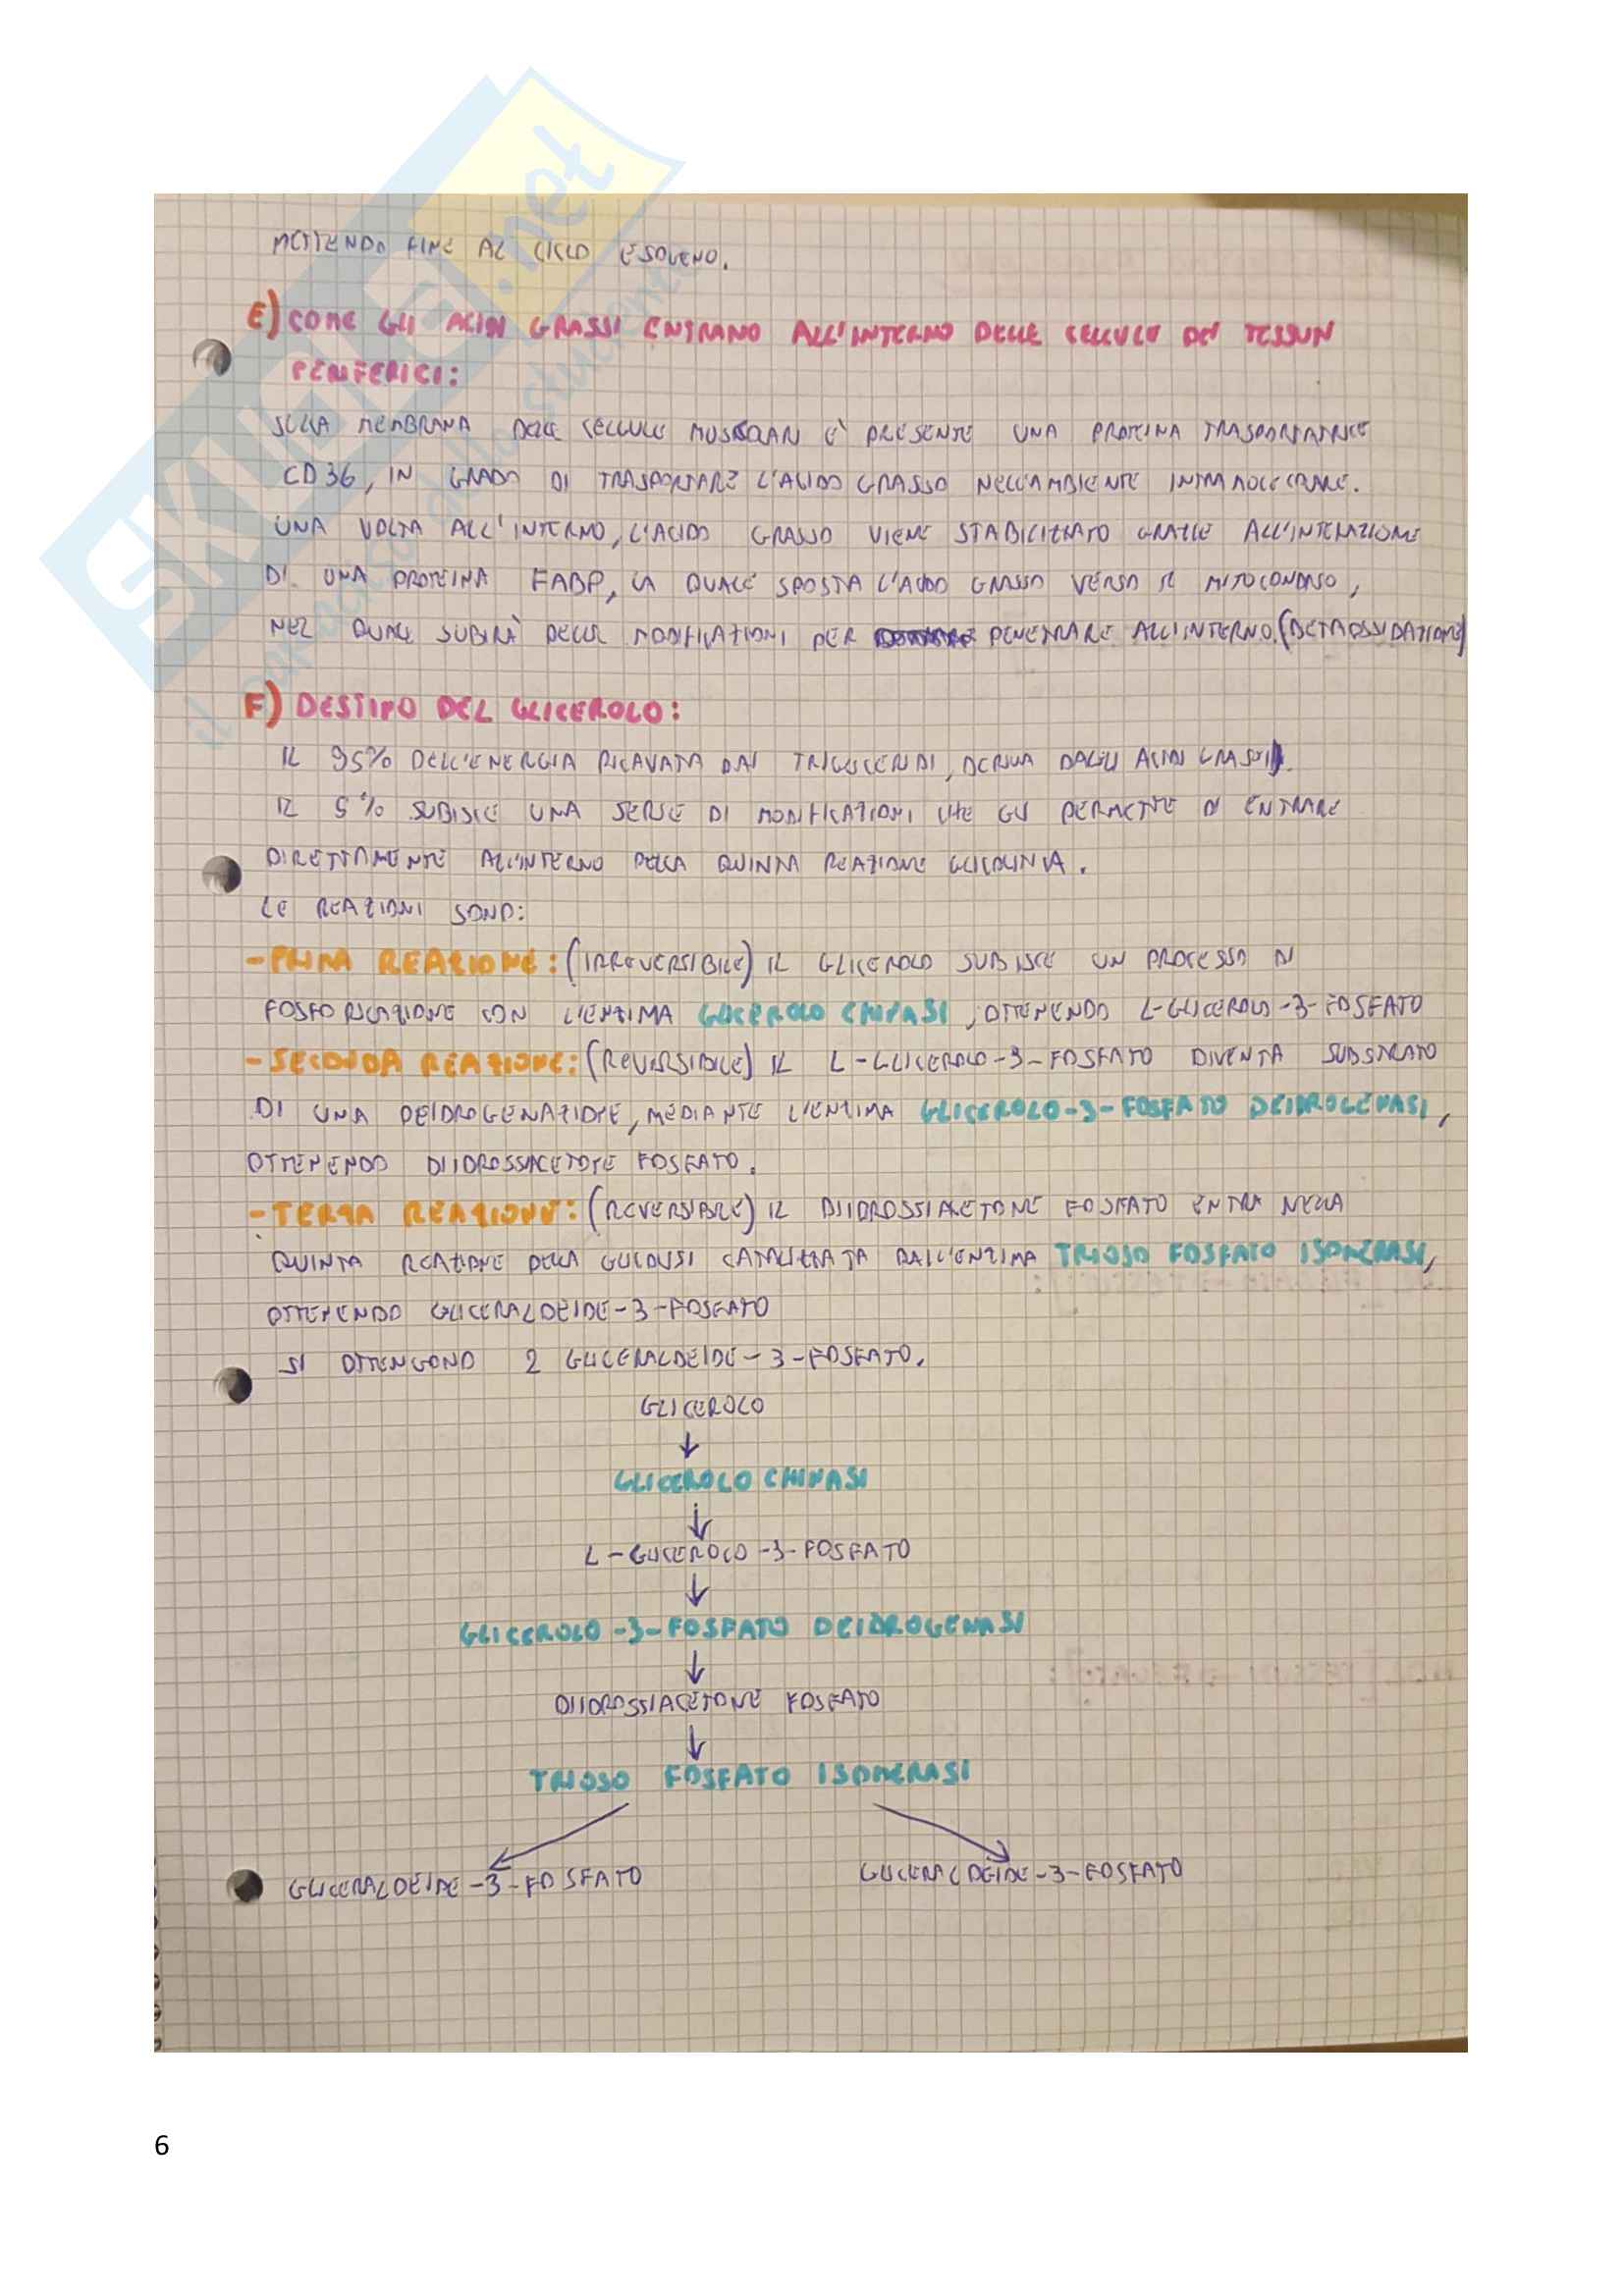 METTENDO FINE AL CICLO ESOGENO.
E) COME GLI ACIDI GRASSI ENTRANO ALL'INTERNO DELLE CELLULE DEI TESSUTI
PERIFERICI:
SULLA MEMBRANA DELLE CELLULE MUSCOLARI È PRESENTE UNA PROTEINA TRASPORTATRICE
CD36, IN GRADO DI TRASPORTARE L'ACIDO GRASSO NELL'AMBIENTE INTRAMOLECOLARE.
UNA VOLTA ALL'INTERNO, L'ACIDO GRASSO VIENE STABILIZZATO GRAZIE ALL'INTERAZIONE
DI UNA PROTEINA FABP, LA QUALE SPOSTA L'ACIDO GRASSO VERSO IL MITOCONDRIO,
NEL QUALE SUBIRÀ DELLE MODIFICAZIONI PER PENETRARE ALL'INTERNO. (BETAOSSIDAZIONE)
F) DESTINO DEL GLICEROLO:
IL 95% DELL'ENERGIA RICAVATA DAI TRIGLICERIDI, DERIVA DAGLI ACIDI GRASSI.
IL 5% SUBISCE UNA SERIE DI MODIFICAZIONI CHE GLI PERMETTE DI ENTRARE
DIRETTAMENTE ALL'INTERNO DELLA QUINTA REAZIONE GLICOLITICA.
LE REAZIONI SONO:
- PRIMA REAZIONE: (IRREVERSIBILE) IL GLICEROLO SUBISCE UN PROCESSO DI
FOSFORILAZIONE CON L'ENZIMA GLICEROLO CHINASI, OTTENENDO L-GLICEROLO-3-FOSFATO
- SECONDA REAZIONE: (REVERSIBILE) IL L-GLICEROLO-3-FOSFATO DIVENTA SUBSTRATO
DI UNA DEIDROGENAZIONE, MEDIANTE L'ENZIMA GLICEROLO-3-FOSFATO DEIDROGENASI,
OTTENENDO DIIDROSSACETONE FOSFATO.
- TERZA REAZIONE: (REVERSIBILE) IL DIIDROSSIACETONE FOSFATO ENTRA NELLA
QUINTA REAZIONE DELLA GLICOLISI CATALIZZATA DALL'ENZIMA TRIOSO FOSFATO ISOMERASI,
OTTENENDO GLICERALDEIDE-3-FOSFATO
SI OTTENGONO 2 GLICERALDEIDE-3-FOSFATO.
GLICEROLO
↓
GLICEROLO CHINASI
↓
L-GLICEROLO-3-FOSFATO
↓
GLICEROLO-3-FOSFATO DEIDROGENASI
↓
DIIDROSSIACETONE FOSFATO
↓
TRIOSO FOSFATO ISOMERASI
GLICERALDEIDE-3-FOSFATO GLICERALDEIDE-3-FOSFATO
6
SKUOLA.net